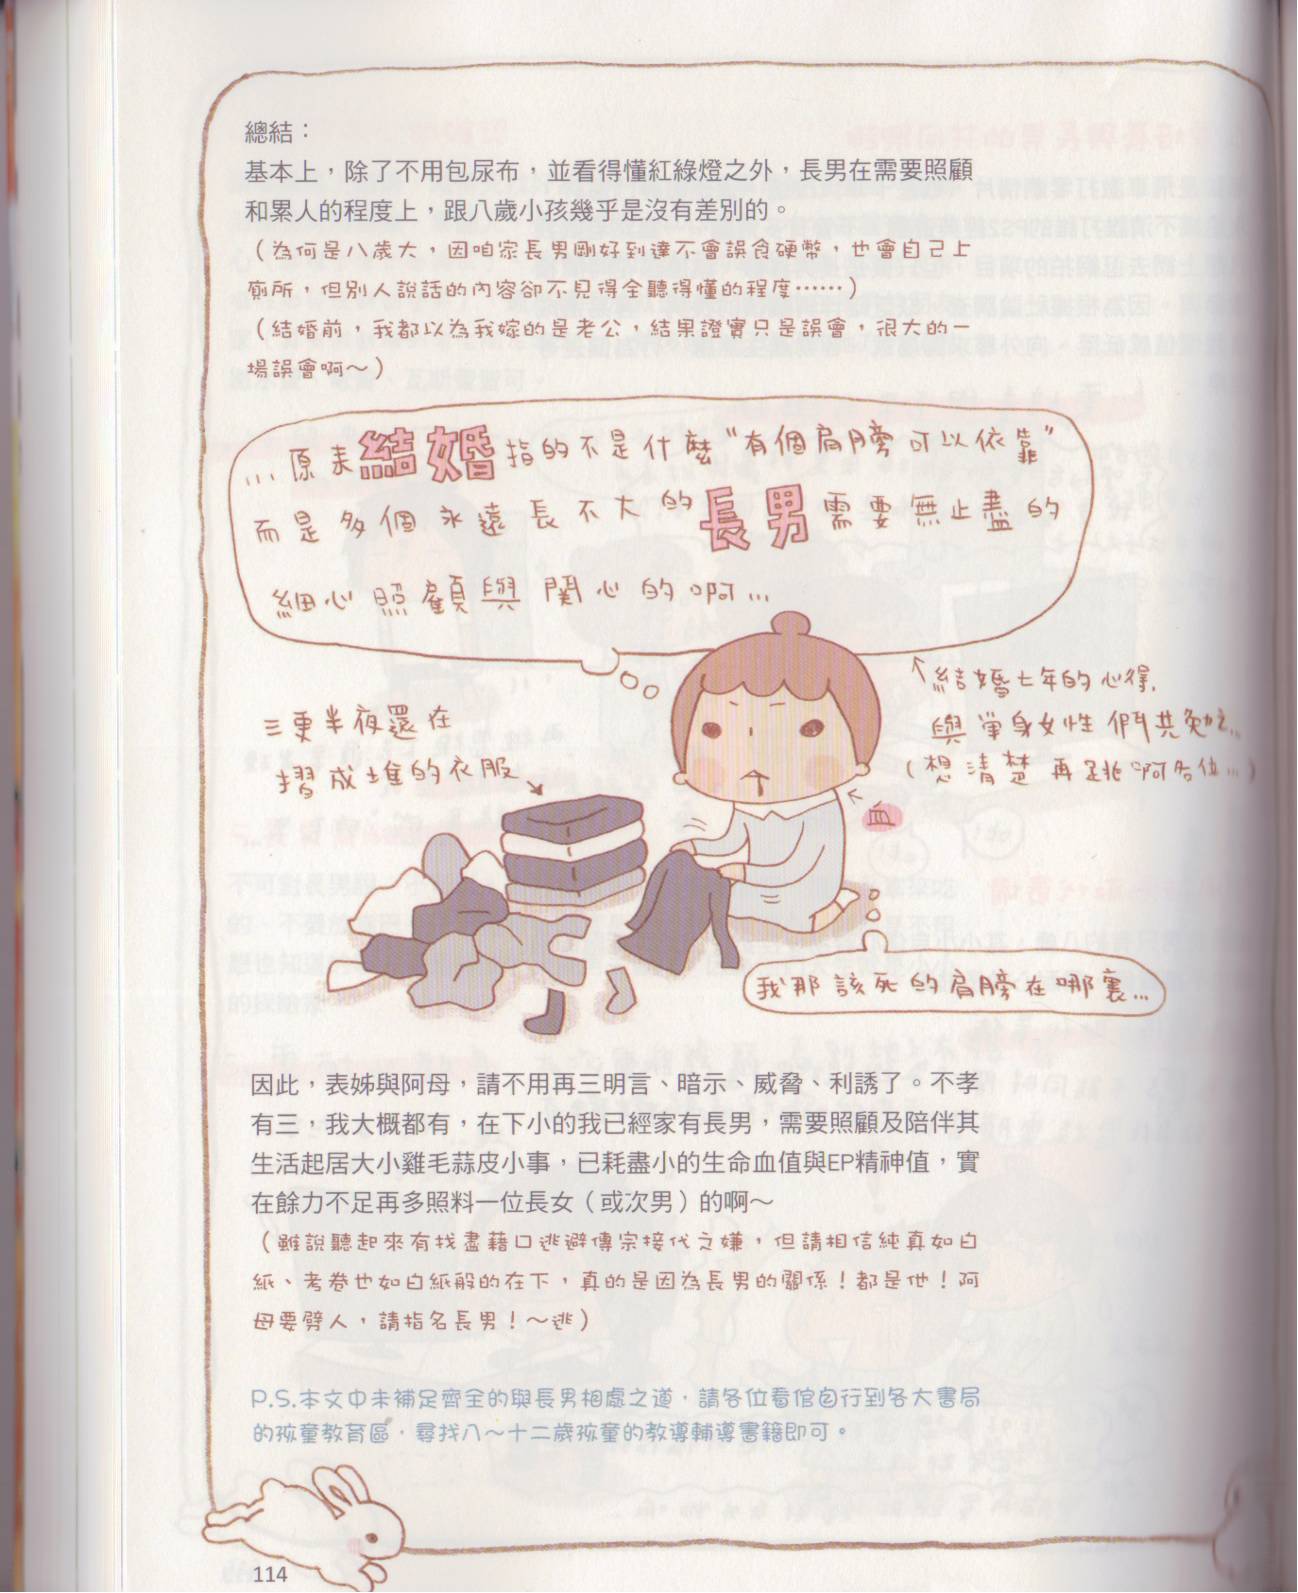 總結：
基本上，除了不用包尿布，並看得懂紅綠燈之外，長男在需要照顧
和累人的程度上，跟八歲小孩幾乎是沒有差別的。
（為何是八歲大，因咱家長男剛好到達不會誤食硬幣，也會自己上
廁所，但別人說話的內容卻不見得全聽得懂的程度……）
（結婚前，我都以為我嫁的是老公，結果證實只是誤會，很大的一
場誤會啊～）
...原來結婚指的不是什麼"有個肩膀可以依靠"
而是多個永遠長不大的長男需要無止盡的
細心照顧與関心的啊...
↑結婚七年的心得,
與單身女性們共勉之...
（想清楚再跳啊各位...）
三更半夜還在
摺成堆的衣服
血
我那該死的肩膀在哪裏...
因此，表姊與阿母，請不用再三明言、暗示、威脅、利誘了。不孝
有三，我大概都有，在下小的我已經家有長男，需要照顧及陪伴其
生活起居大小雞毛蒜皮小事，已耗盡小的生命血值與EP精神值，實
在餘力不足再多照料一位長女（或次男）的啊～
（雖說聽起來有找盡藉口逃避傳宗接代之嫌，但請相信純真如白
紙、考卷也如白紙般的在下，真的是因為長男的關係！都是他！阿
母要劈人，請指名長男！～逃）
P.S.本文中未補足齊全的與長男相處之道，請各位看倌自行到各大書局
的孩童教育區，尋找八～十二歲孩童的教導輔導書籍即可。
114